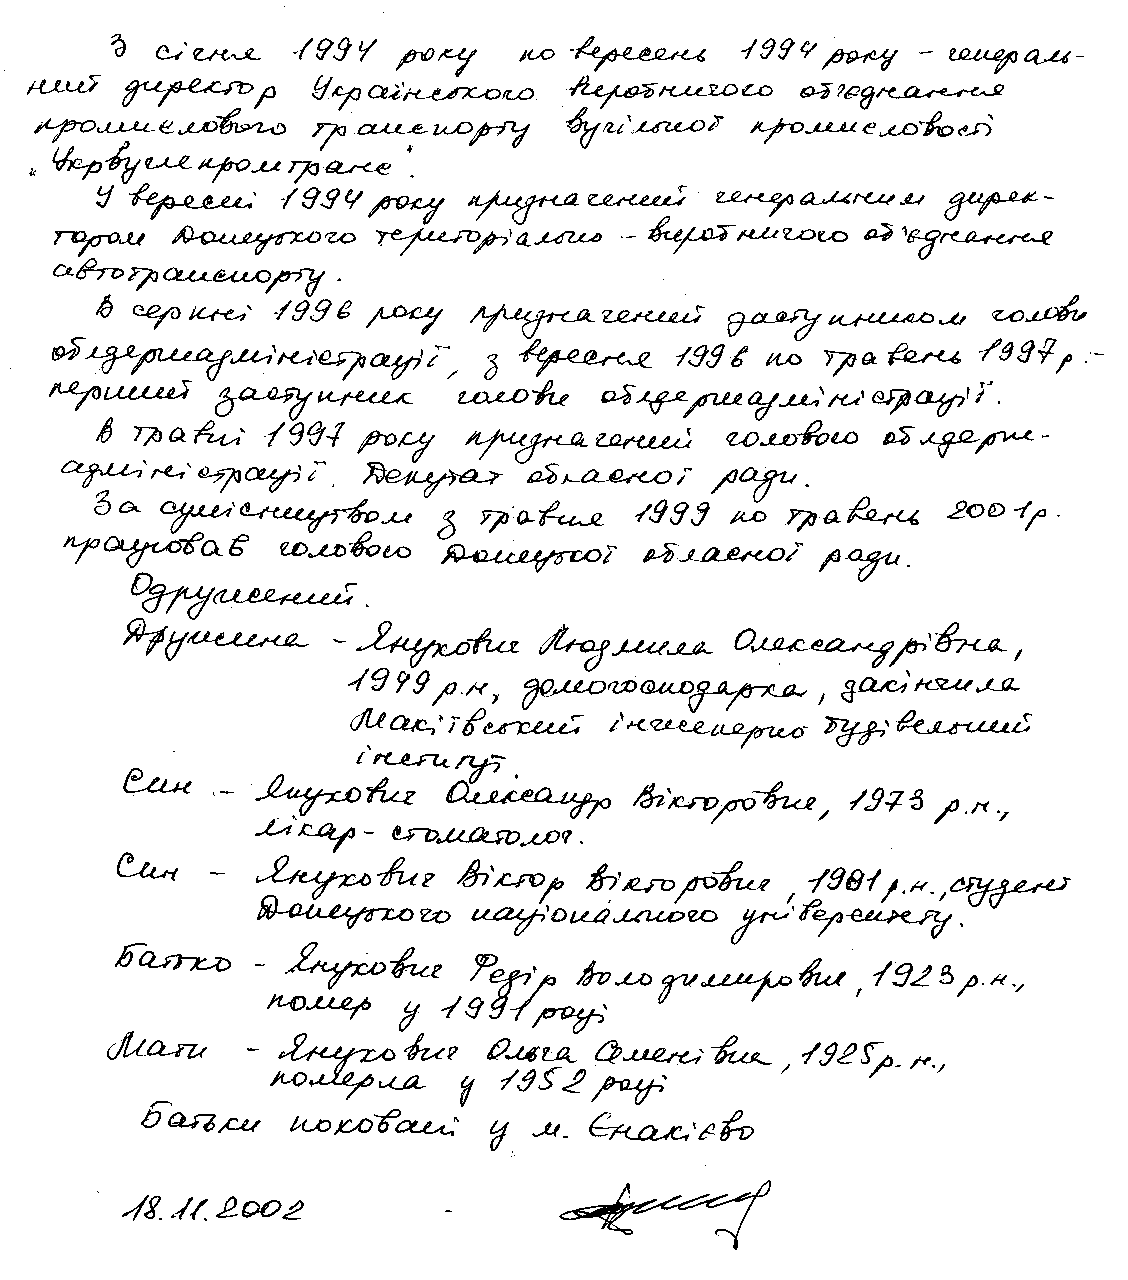 З січня 1994 року по вересень 1994 року – генераль-
ний директор Українського виробничого об'єднання
промислового транспорту вугільної промисловості
„Укрвуглепромтранс".
У вересні 1994 року призначений генеральним дирек-
тором Донецького територіально – виробничого об'єднання
автотранспорту.
В серпні 1996 року призначений заступником голови
облдержадміністрації, з вересня 1996 по травень 1997 р. –
перший заступник голови облдержадміністрації.
В травні 1997 року призначений головою облдерж-
адміністрації. Депутат обласної ради.
За сумісництвом з травня 1999 по травень 2001 р.
працював головою Донецької обласної ради.
Одружений.
Дружина – Янукович Людмила Олександрівна,
1949 р.н., домогосподарка, закінчила
Макіївський інженерно будівельний
інститут.
Син – Янукович Олександр Вікторович, 1973 р.н.,
лікар-стоматолог.
Син – Янукович Віктор Вікторович, 1981 р.н., студент
Донецького національного університету.
Батько – Янукович Федір Володимирович, 1923 р.н.,
помер у 1991 році
Мати – Янукович Ольга Семенівна, 1925 р.н.,
померла у 1952 році
Батьки поховані у м. Єнакієво
18.11.2002